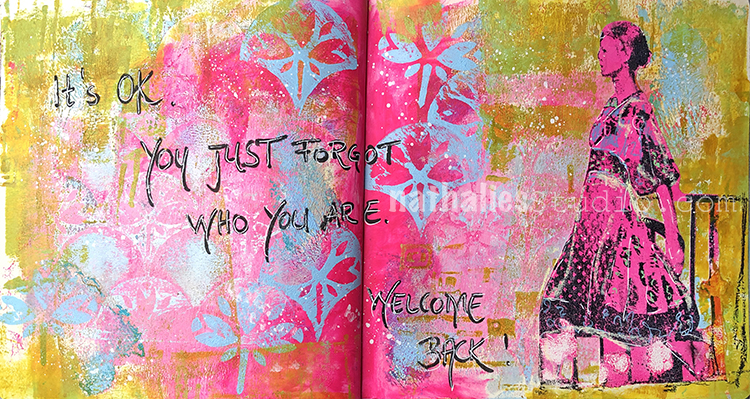 It's OK.
YOU JUST FORGOT
WHO YOU ARE.
nathaliesstudio.com
WELCOME
BACK!